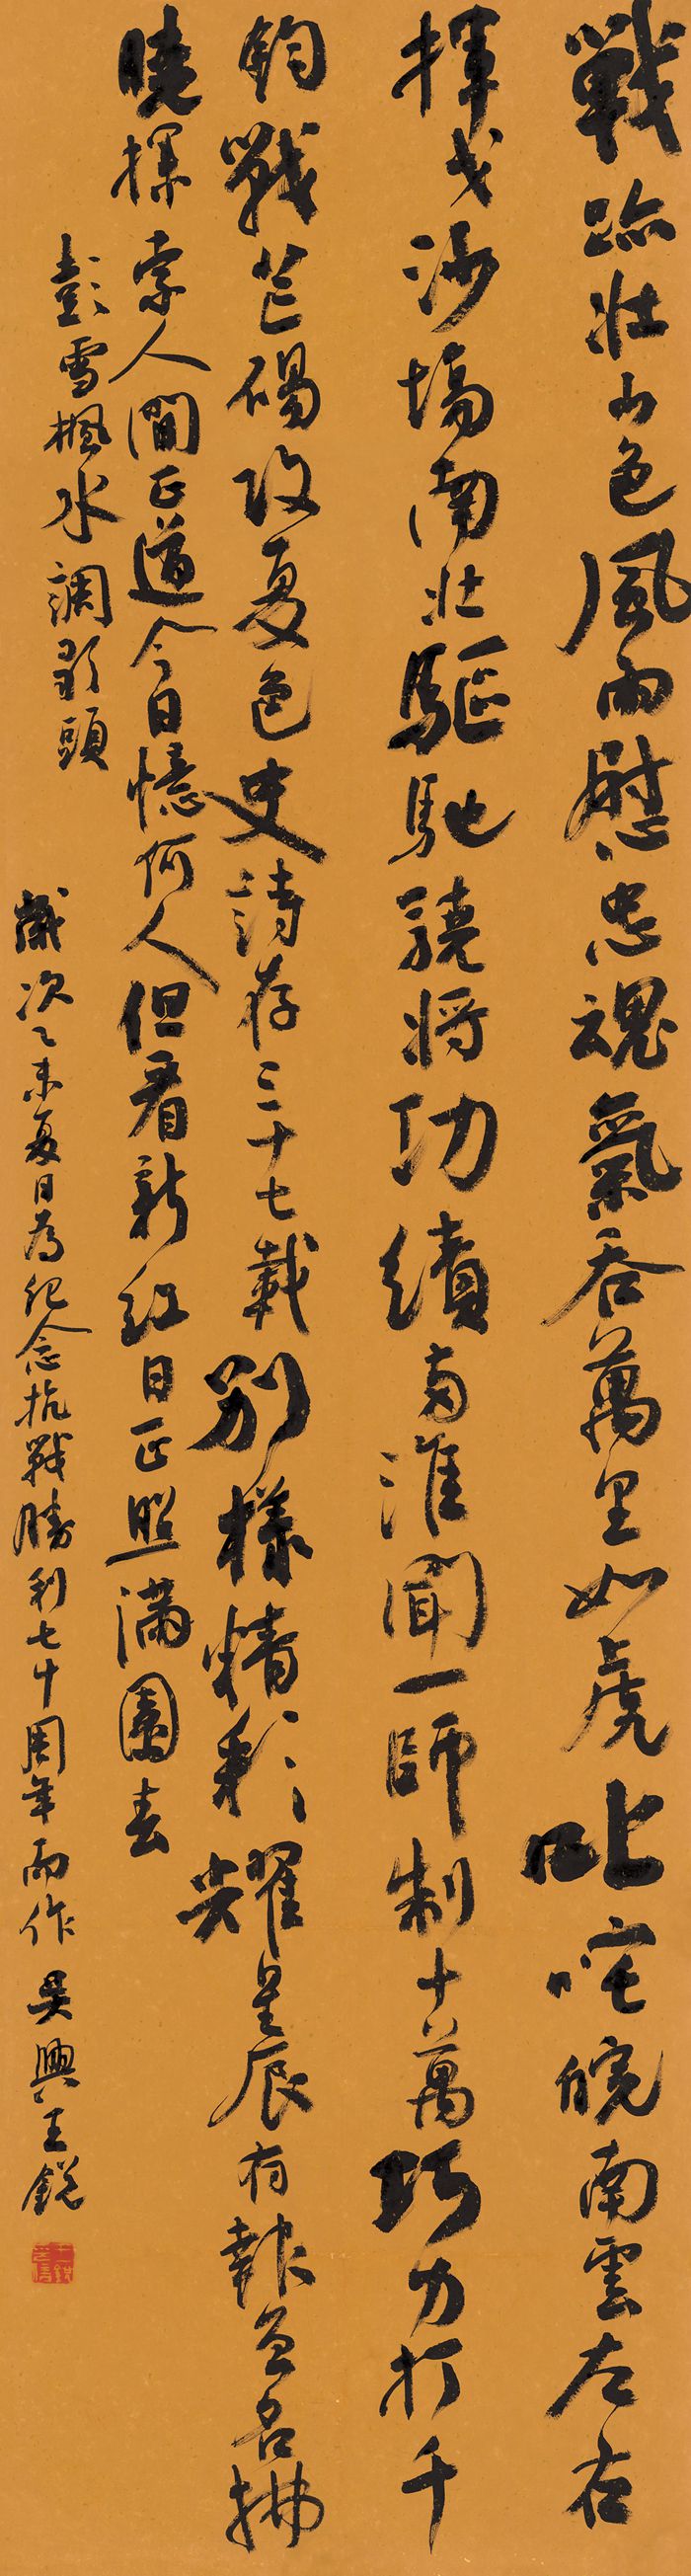 戰跡壯山色風雨慰忠魂氣吞萬里如虎叱咤皖南雲左右
揮戈沙場南北驅馳驍將功績兩淮聞一師制十萬巧力打千
鈞戰芒碭攻夏邑史詩存三十七載別樣精彩耀星辰有報名拂
曉探索人間正道今日憶何人但看新紅日正照滿園春
彭雪楓水調歌頭
歲次乙未夏日為紀念抗戰勝利七十周年而作 吳興王銳